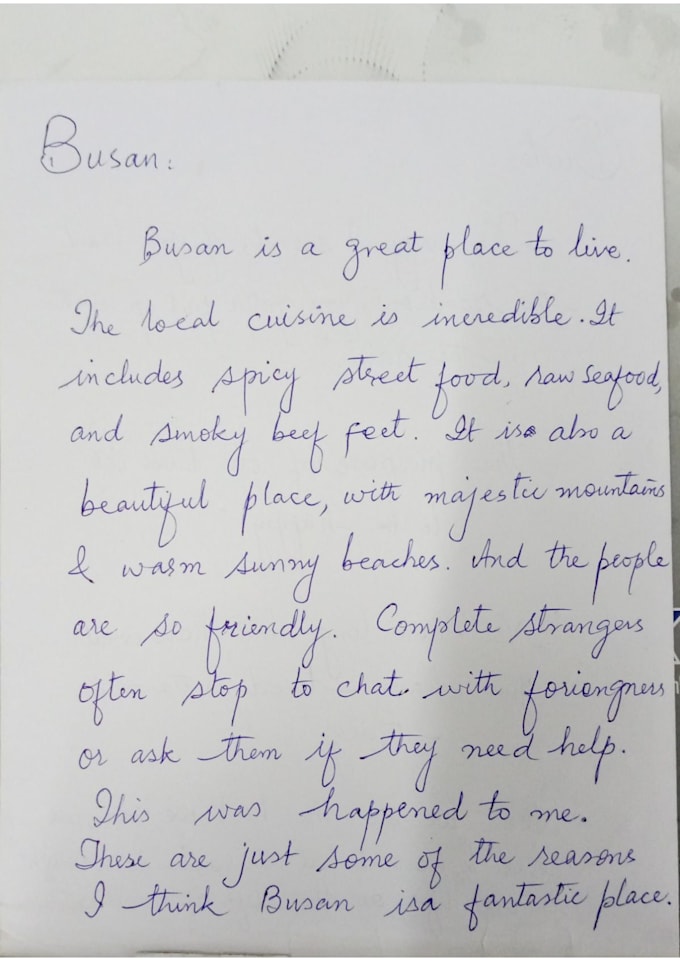 Busan:
Busan is a great place to live.
The local cuisine is incredible. It
includes spicy street food, raw seafood,
and smoky beef feet. It is also a
beautiful place, with majestic mountains
& warm sunny beaches. And the people
are so friendly. Complete strangers
often stop to chat with foriengners
or ask them if they need help.
This was happened to me.
These are just some of the reasons
I think Busan is a fantastic place.